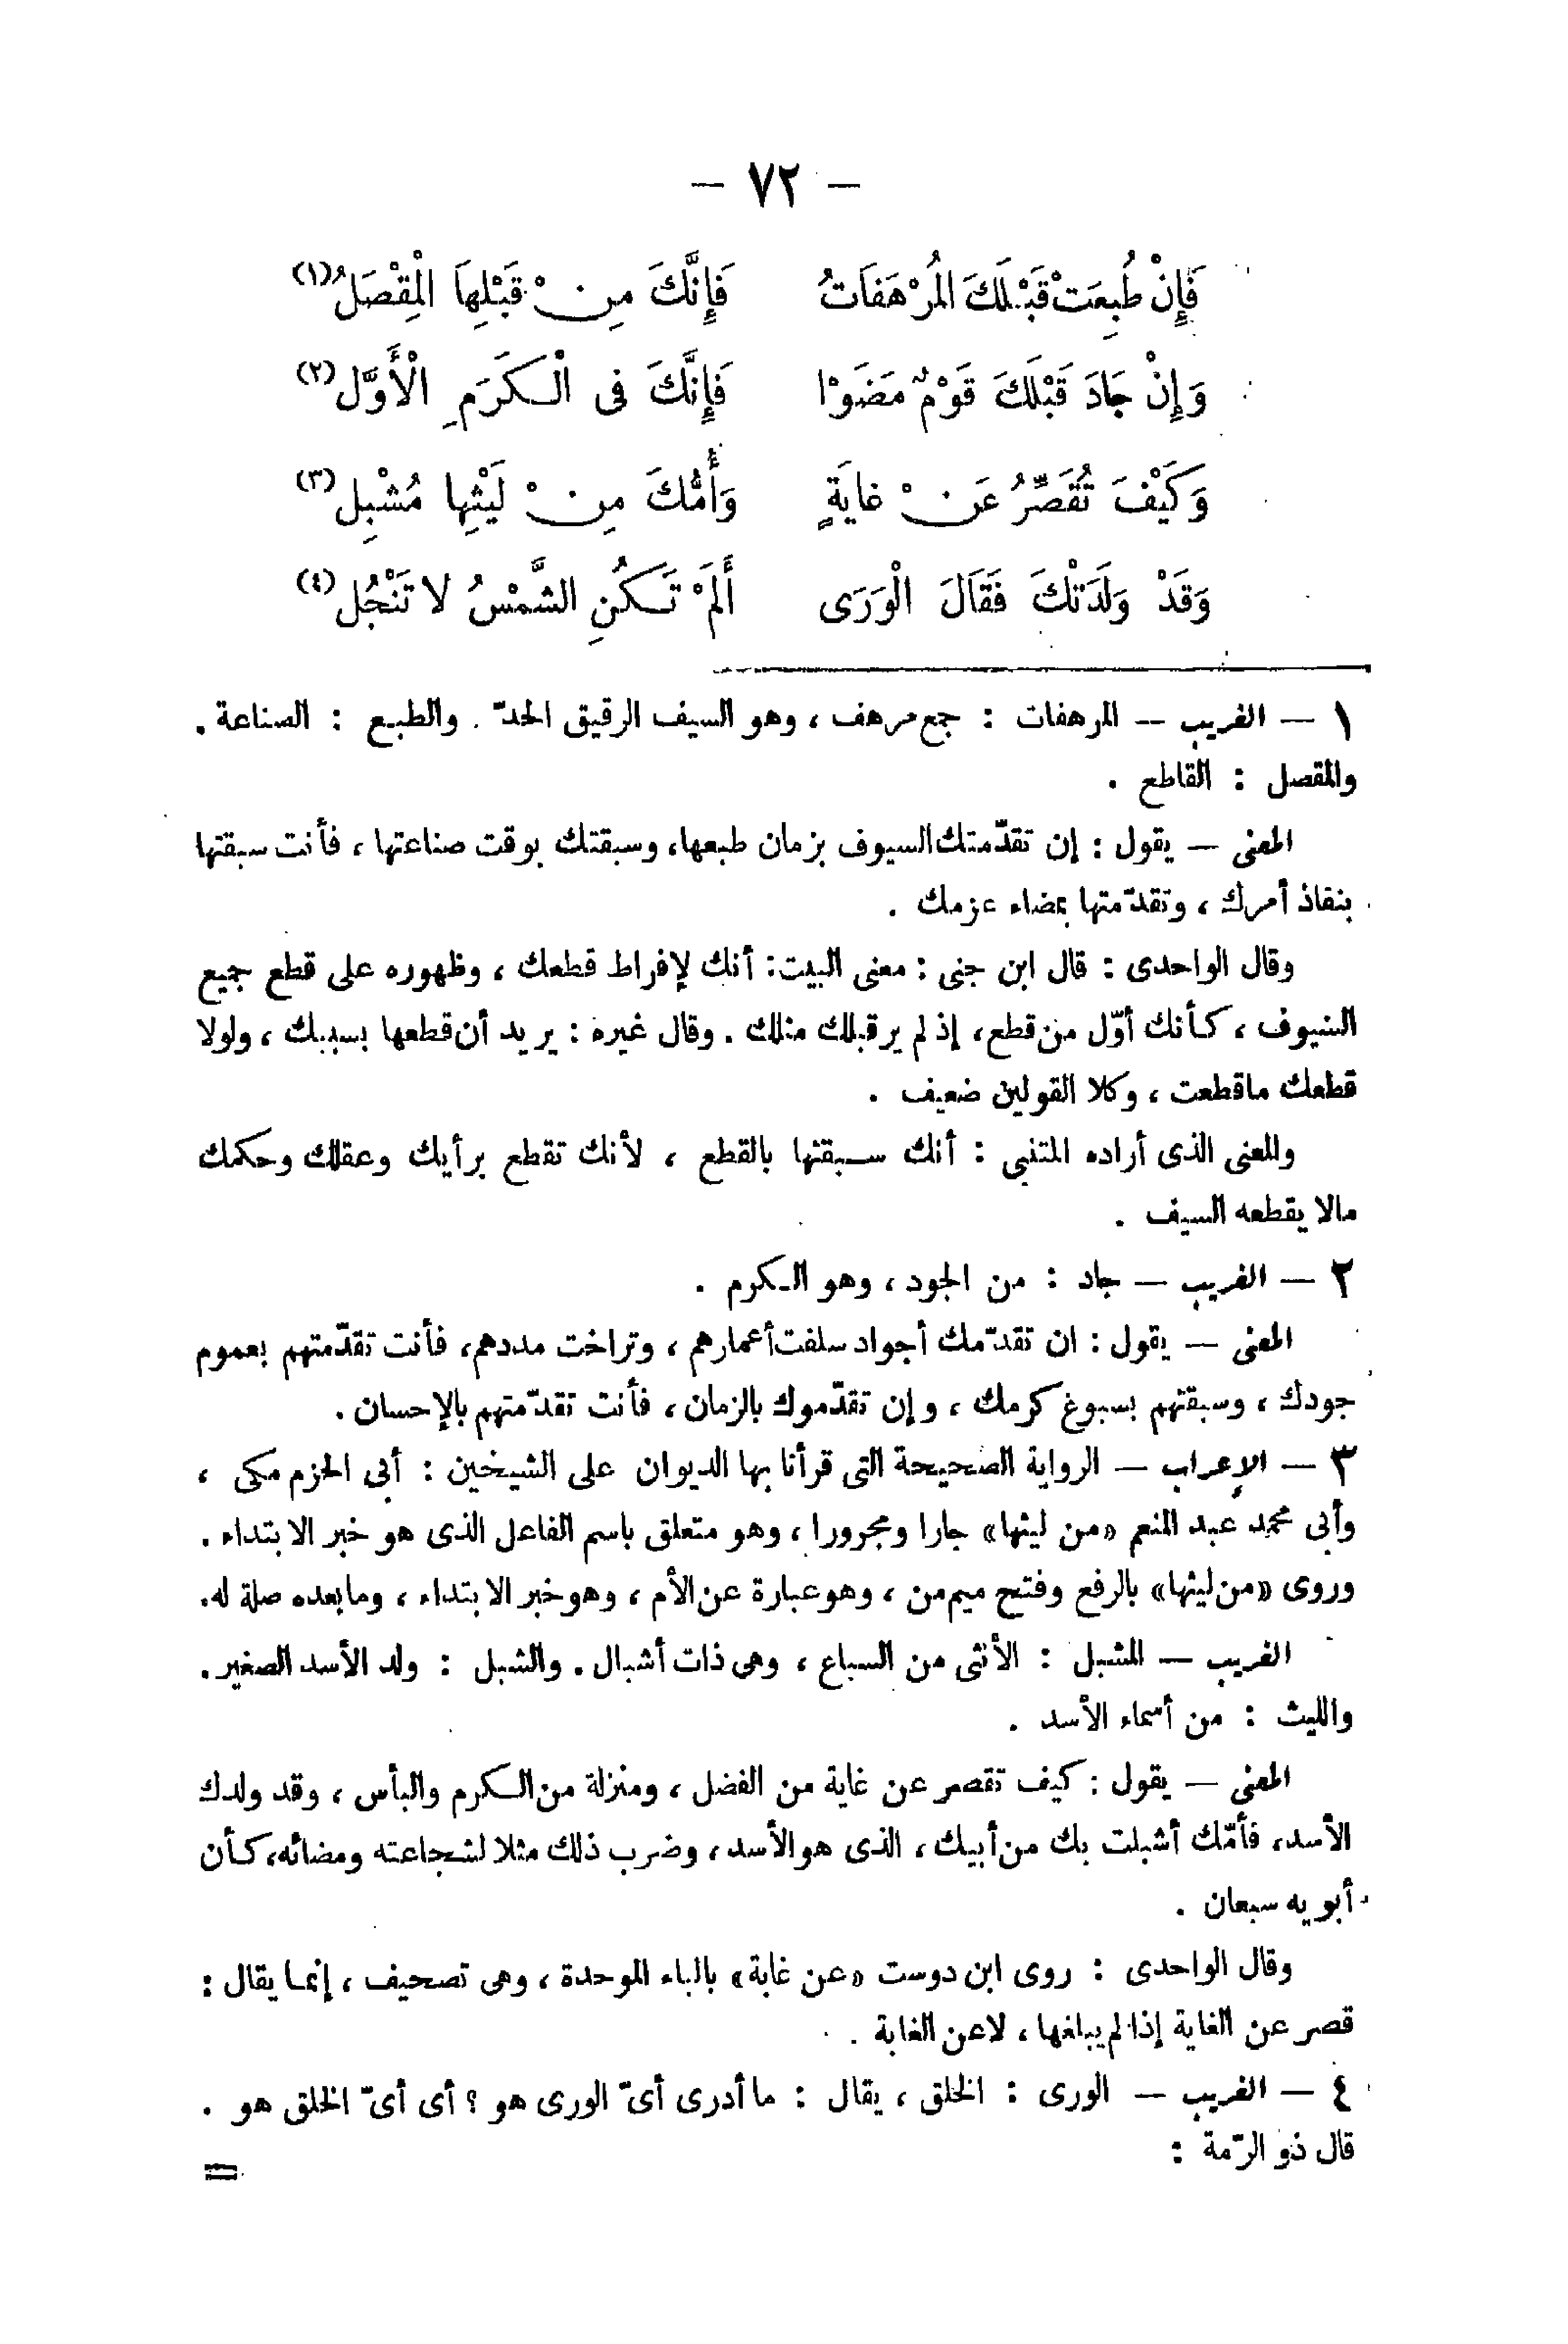 — ٧٢ —
فَإِنْ طُبِعَتْ قَبْلَكَ الْمُرْهَفَاتُ فَإِنَّكَ مِنْ قَبْلِهَا الْمِقْصَلُ (١)
وَإِنْ جَادَ قَبْلَكَ قَوْمٌ مَضَوْا فَإِنَّكَ فى الْكَرَمِ الْأَوَّل (٢)
وَكَيْفَ تُقَصِّرُ عَنْ غايَةٍ وَأُمُّكَ مِنْ لَيْثِها مُشْبِل (٣)
وَقَدْ وَلَدَتْكَ فَقَالَ الْوَرَى أَلَمْ تَكُنِ الشَّمْسُ لا تَنْجُل (٤)
١ — الغريب — المرهفات : جمع مرهف ، وهو السيف الرقيق الحدّ . والطبع : الصناعة .
والمقصل : القاطع .
المعنى — يقول : إن تقدّمتك السيوف بزمان طبعها، وسبقتك بوقت صناعتها ، فأنت سبقتها
بنفاذ أمرك ، وتقدّمتها بمضاء عزمك .
وقال الواحدى : قال ابن جنى : معنى البيت : أنك لإفراط قطعك ، وظهوره على قطع جميع
السيوف ، كأنك أوّل من قطع، إذ لم ير قبلك مثلك . وقال غيره : يريد أن قطعها بسببك ، ولولا
قطعك ماقطعت ، وكلا القولين ضعيف .
والمعنى الذى أراده المتنبى : أنك سبقتها بالقطع ، لأنك تقطع برأيك وعقلك وحكمك
مالا يقطعه السيف .
٢ — الغريب — جاد : من الجود ، وهو الكرم .
المعنى — يقول : ان تقدّمك أجواد سلفت أعمارهم ، وتراخت مددهم، فأنت تقدّمتهم بعموم
جودك ، وسبقتهم بسبوغ كرمك ، وإن تقدّموك بالزمان ، فأنت تقدّمتهم بالإحسان .
٣ — الإعراب — الرواية الصحيحة التى قرأنا بها الديوان على الشيخين : أبى الحزم مكى ،
وأبى محمد عبد المنعم «من ليثها» جارا ومجرورا ، وهو متعلق باسم الفاعل الذى هو خبر الابتداء .
وروى «من ليثها» بالرفع وفتح ميم من ، وهو عبارة عن الأم ، وهو خبر الابتداء ، ومابعده صلة له.
الغريب — المشبل : الأنثى من السباع ، وهى ذات أشبال . والشبل : ولد الأسد الصغير .
والليث : من أسماء الأسد .
المعنى — يقول : كيف تقصر عن غاية من الفضل ، ومنزلة من الكرم والبأس ، وقد ولدك
الأسد، فأمّك أشبلت بك من أبيك ، الذى هو الأسد ، وضرب ذلك مثلا لشجاعته ومضائه، كأن
أبويه سبعان .
وقال الواحدى : روى ابن دوست «عن غابة» بالباء الموحدة ، وهى تصحيف ، إنما يقال :
قصر عن الغاية إذا لم يبلغها ، لاعن الغابة .
٤ — الغريب — الورى : الخلق ، يقال : ما أدرى أىّ الورى هو ؟ أى أىّ الخلق هو .
قال ذو الرّمة :
=